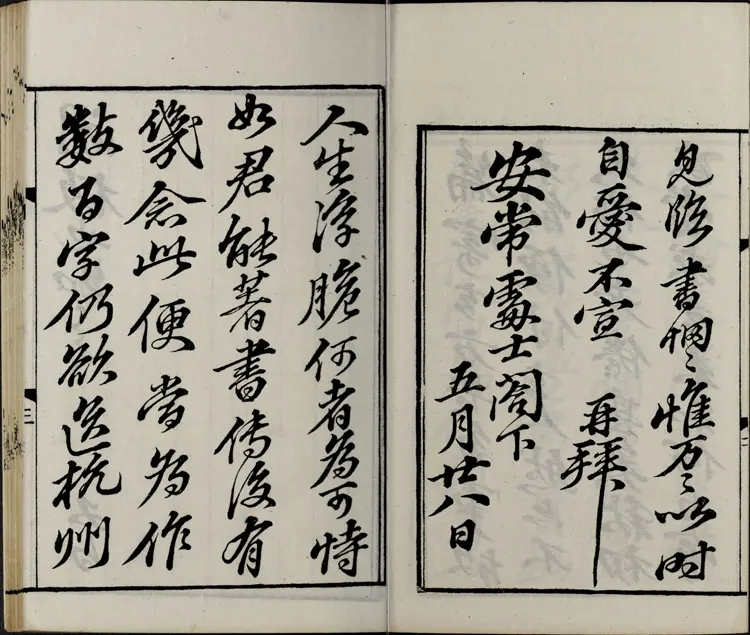 見臨書惘〻惟万〻以时
自愛不宣 再拜
安常處士閣下
五月廿八日
人生浮脆何者為可恃
如君能著書傳後有
幾念此便當為作
數百字仍欲送杭州
三